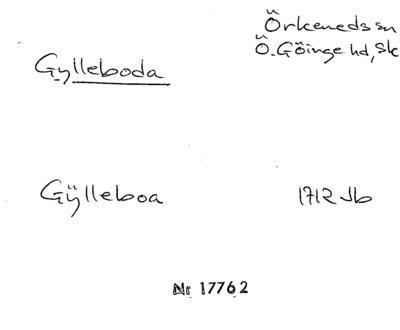 Örkeneds sn
Gylleboda Ö. Göinge hd, Sk
Gÿlleboa 1712 Jb
Nr 17762